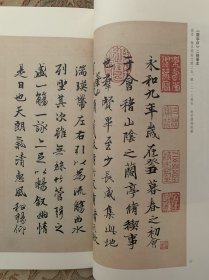 永和九年歲在癸丑暮春之初會
于會稽山陰之蘭亭脩稧事
也羣賢畢至少長咸集此地
湍暎帶左右引以為流觴曲水
列坐其次雖無絲竹管弦之
盛一觴一詠亦足以暢叙幽情
是日也天朗氣清惠風和暢仰